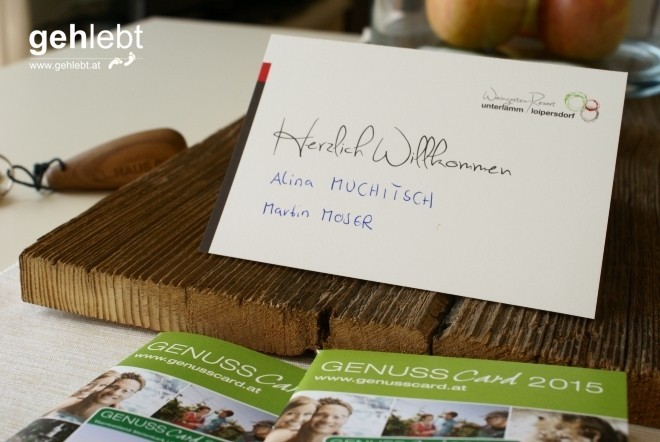 gehlebt
www.gehlebt.at
Weingarten-Resort
unterlamm loipersdorf
Herzlich Willkommen
Alina MUCHITSCH
Martin MOSER
HAUS
GENUSS Card
www.genusscard.at
GENUSS Card 2015
www.genusscard.at
GENUSS Card
GENUSS Card